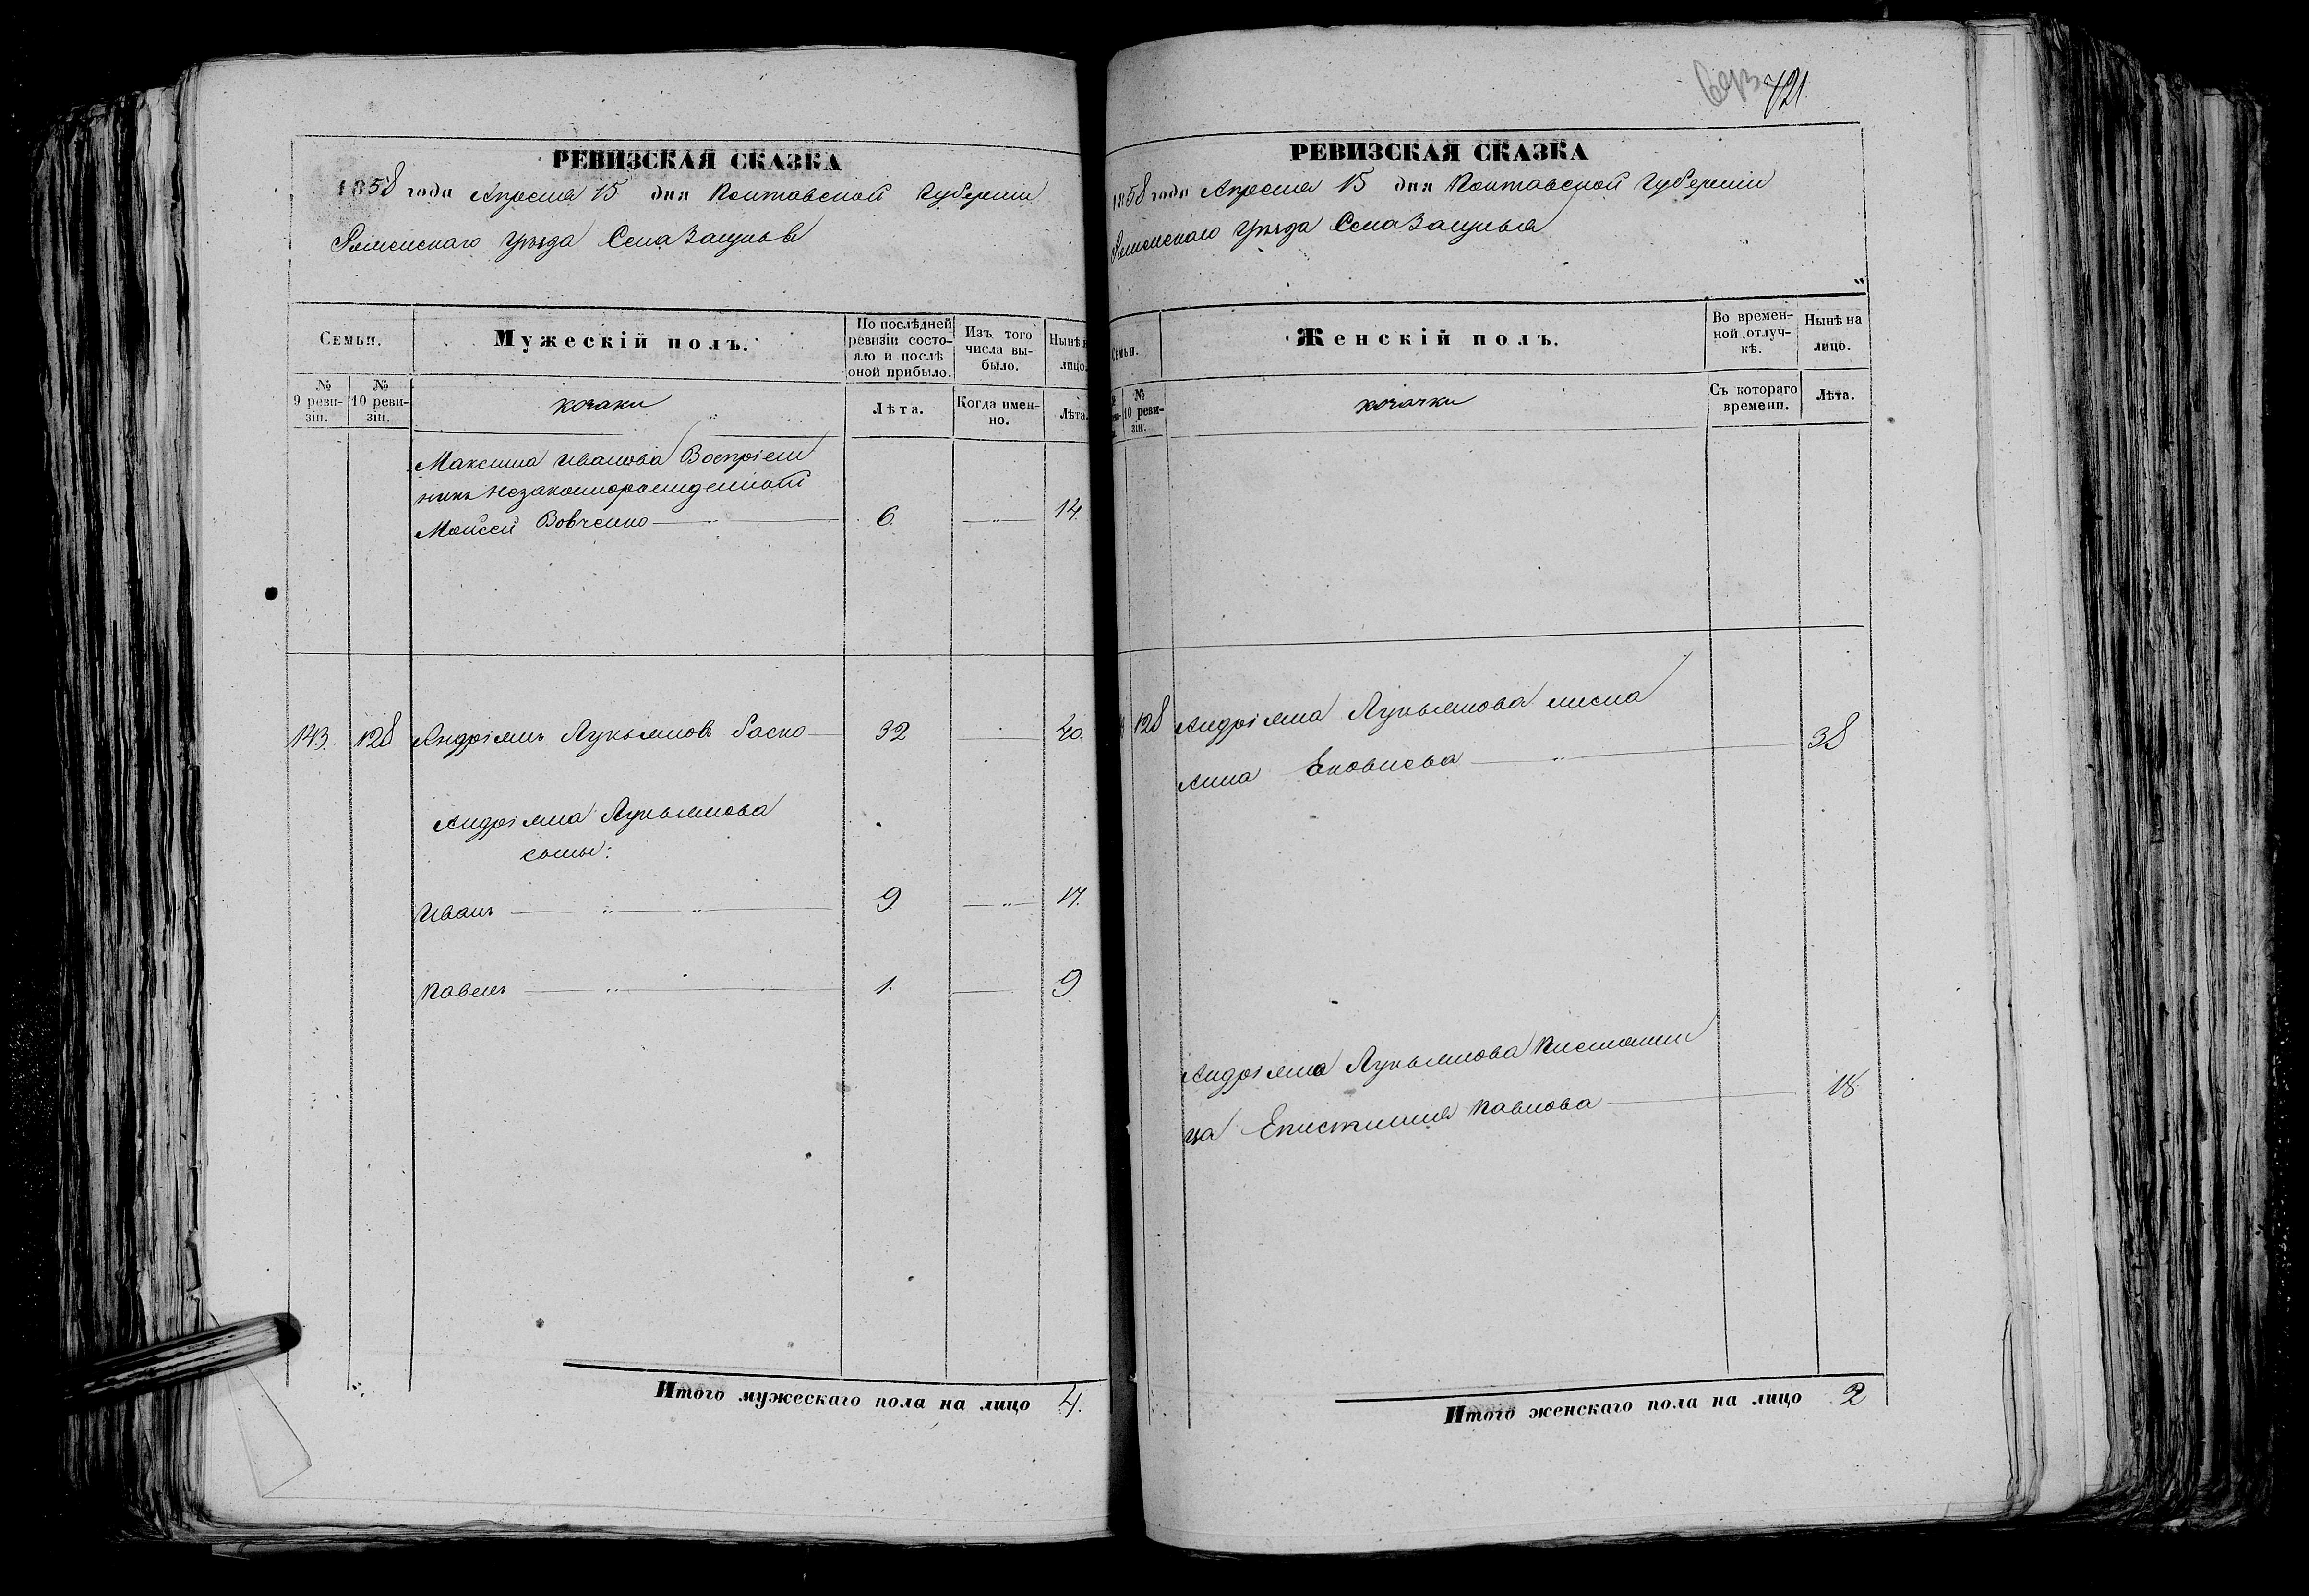 РЕВИЗСКАЯ СКАЗКА
1858 года Апреля 15 дня Полтавской Губернии
Роменскаго Уѣзда Села Защулья
Семьи.
Мужескій полъ.
По послѣдней ревизіи состояло и послѣ оной прибыло.
Изъ того числа выбыло.
Нынѣ н
лицо.
№ 9 ревизіи.
№ 10 ревизіи.
козаки
Лѣта.
Когда именно.
Лѣта.
Максима Иванова Воспріем
никъ незаконнорожденной
Моисей Вовченко 6. 14.
143. 128 Андріянъ Лукьяновъ Распо 32 40.
Андріяна Лукьянова
сыны:
Иванъ 9. 17.
Павелъ 1. 9.
Итого мужескаго пола на лицо 4.
721.
РЕВИЗСКАЯ СКАЗКА
1858 года Апреля 15 дня Полтавской Губерніи
Роменскаго Уѣзда Села Защулья
Семьи.
Женскій полъ.
Во временной отлучкѣ.
Нынѣ на лицо.
№ 10 ревизіи.
козачки
Съ котораго времени.
Лѣта.
128 Андріяна Лукьянова жена
Анна Яковлева 38
Андріяна Лукьянова племянни
ца Епистимия Павлова 18.
Итого женскаго пола на лицо 2